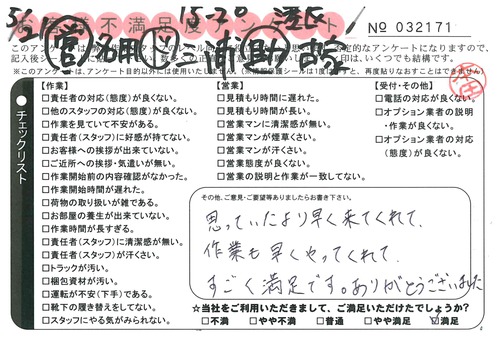 5/2 15-20
不満足度アンケート
No 032171
【作業】
□責任者の対応(態度)が良くない。
□他のスタッフの対応(態度)が良くない。
□作業を見ていて不安がある。
□責任者(スタッフ)に好感が持てない。
□お客様への挨拶が出来ていない。
□ご近所への挨拶・気遣いが無い。
□作業開始前の内容確認がなかった。
□作業開始時間が遅れた。
□荷物の取り扱いが雑である。
□お部屋の養生が出来ていない。
□作業時間が長すぎる。
□責任者(スタッフ)に清潔感が無い。
□責任者(スタッフ)が汗くさい。
□トラックが汚い。
□梱包資材が汚い。
□運転が不安(下手)である。
□靴下の履き替えをしてない。
□スタッフにやる気がみられない。
【営業】
□見積もり時間に遅れた。
□見積もり時間が長い。
□営業マンに清潔感が無い。
□営業マンが煙草くさい。
□営業マンが汗くさい。
□営業態度が良くない。
□営業の説明と作業が一致してない。
【受付・その他】
□電話の対応が良くない。
□オプション業者の説明
・作業が良くない。
□オプション業者の対応
(態度)が良くない。
チェックリスト
その他、ご意見・ご要望等ありましたらお書き下さい。
思っていたより早く来てくれて、
作業も早くやってくれて、
すごく満足です。ありがとうございました
☆当社をご利用いただきまして、ご満足いただけたでしょうか?
□不満 □やや不満 □普通 □やや満足 ☑満足